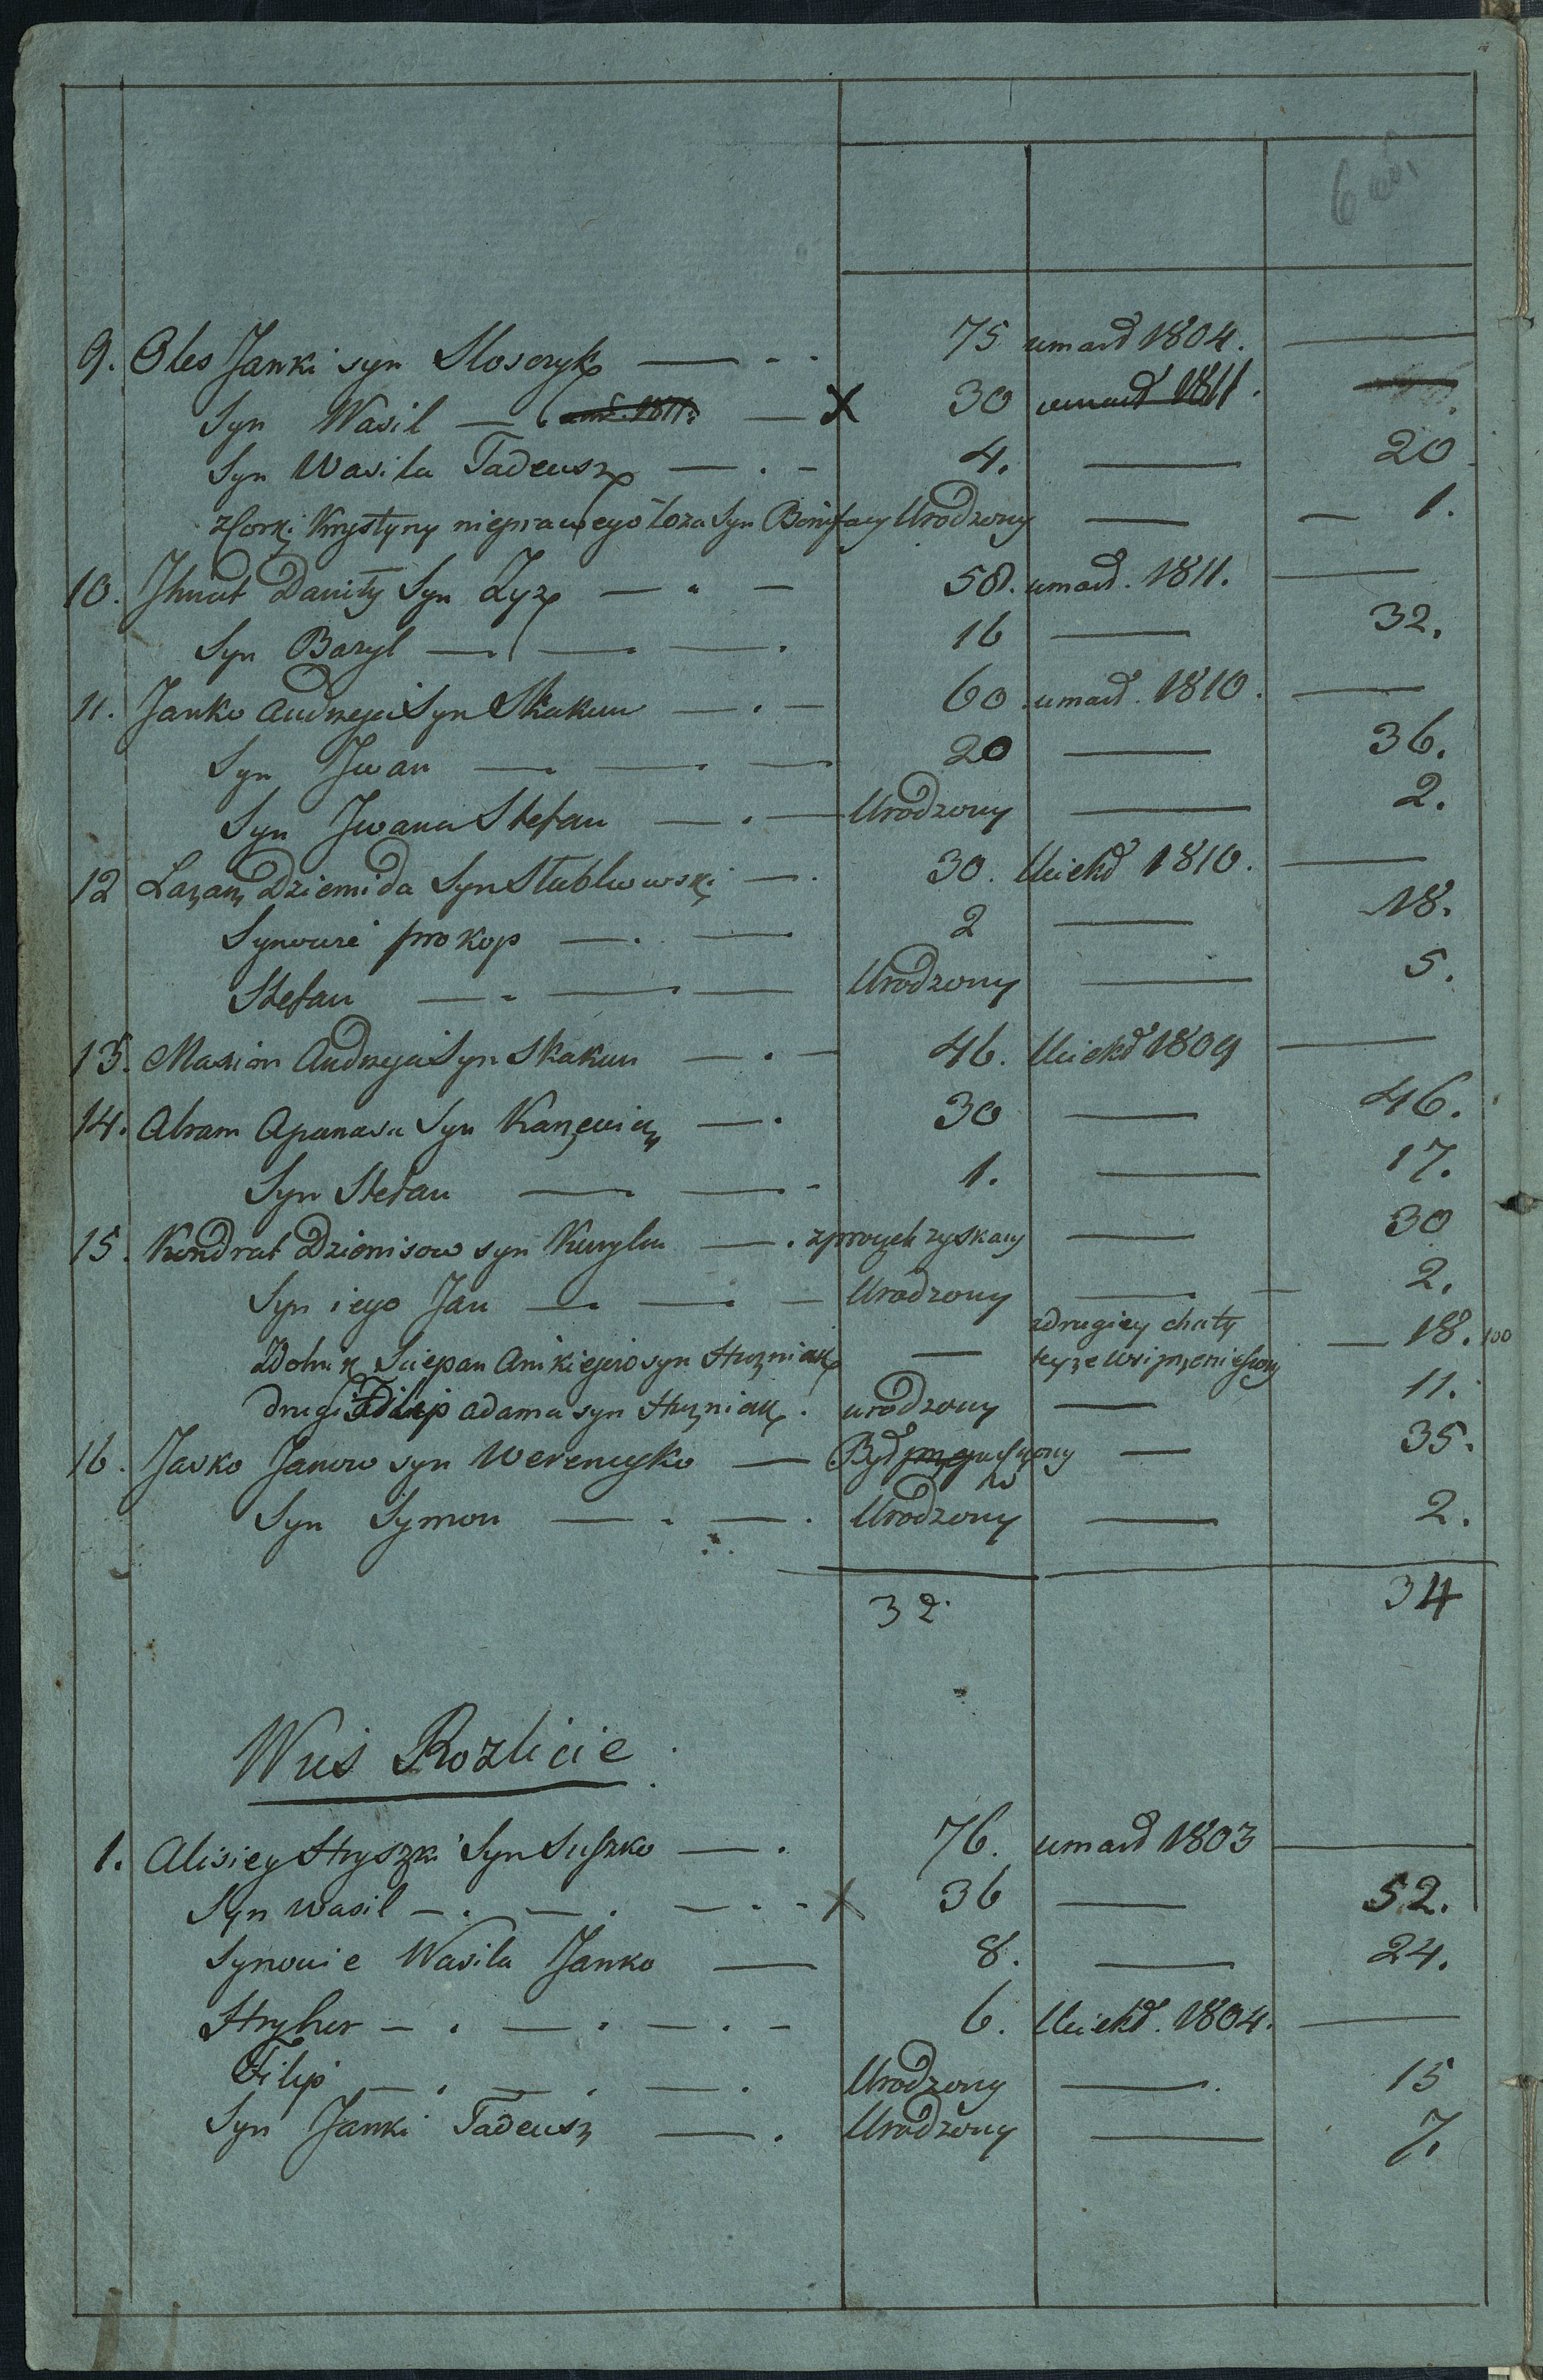 6 об.
9. Oles Janki syn Slosczyk — 75 umarł 1804. —
Syn Wasil — um. 1811. — X 30 umarł 1811. —
Syn Wasila Tadeusz — 4. — 20
z Corki Krystyny nieprawego łoża Syn Bonifacy Urodzony — 1.
10. Jhnat Daniły Syn Zyz — 58. umarł. 1811. —
Syn Bazyl — 16 — 32.
11. Janko Andrzeja Syn Skakun — 60 umarł. 1810. —
Syn Jwan — 20 — 36.
Syn Jwana Stefan — Urodzony — 2.
12 Łazarz Dziemida Syn — 30. Uciekł 1810. —
Synowie prokop — 2 — 18.
Stefan — Urodzony — 5.
13. Maxim Andrzeja Syn Skakun — 46. Uciekł 1809 —
14. Abram Apanasa Syn — 30 — 46.
Syn Stefan — 1. — 17.
15. Kondrat Dzionisow syn Kuryło — . zprosych zyskany — 30
Syn iego Jan — Urodzony — 2.
zdrugiey chaty
Sciepan Anikiejewo syn Huzniak — teyze wsi przeniesiony — 18. 100
drugi Filip adama syn Huzniak. urodzony — 11.
16. Jasko Janow syn Werenczko — Był — 35.
Syn Symon — Urodzony — 2.
32. 34
Wieś Rozlicie
1. Alisiey Hryszki Syn Suszko — 76. umarł 1803 —
Syn wasil — X 36 — 52.
Synowie Wasila Janko — 8. — 24.
Hryhor — 6. Uciekł. 1804. —
Filip — Urodzony — 15
Syn Janki Tadeusz — Urodzony — 7.